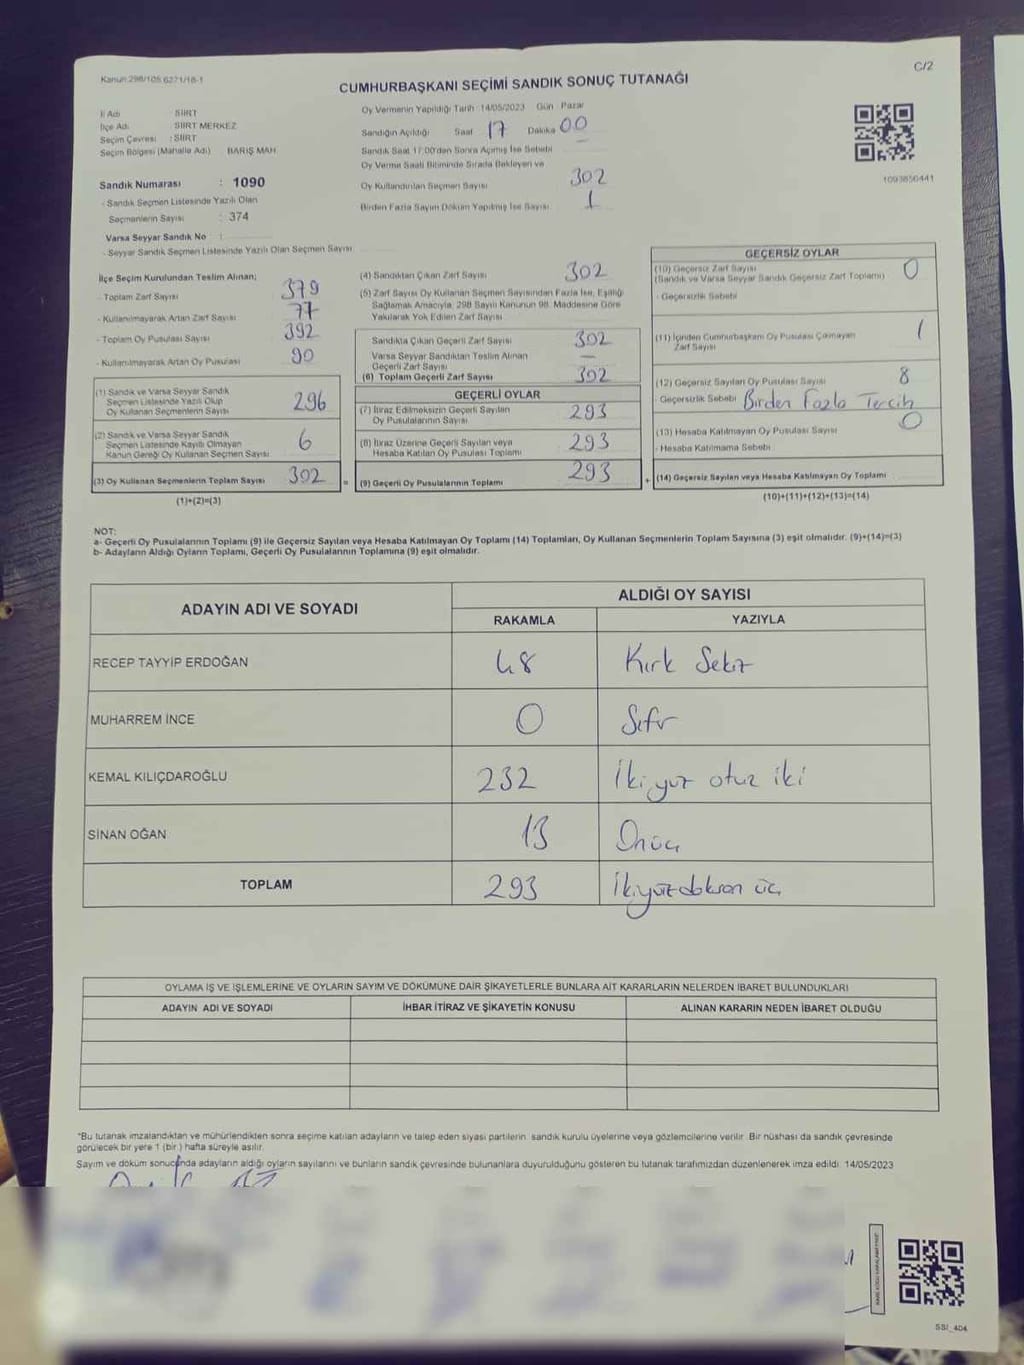 C/2
Kanun 298/105 6271/18-1
CUMHURBAŞKANI SEÇİMİ SANDIK SONUÇ TUTANAĞI
İl Adı : SİİRT
İlçe Adı : SİİRT MERKEZ
Seçim Çevresi : SİİRT
Seçim Bölgesi (Mahalle Adı) BARIŞ MAH.
Sandık Numarası : 1090
- Sandık Seçmen Listesinde Yazılı Olan
Seçmenlerin Sayısı : 374
Varsa Seyyar Sandık No :
- Seyyar Sandık Seçmen Listesinde Yazılı Olan Seçmen Sayısı
Oy Vermenin Yapıldığı Tarih : 14/05/2023 Gün Pazar
Sandığın Açıldığı Saat 17 Dakika 00
Sandık Saat 17:00'den Sonra Açılmış İse Sebebi
Oy Verme Saati Bitiminde Sırada Bekleyen ve
Oy Kullandırılan Seçmen Sayısı 302
Birden Fazla Sayım Döküm Yapılmış İse Sayısı 1
1093850441
İlçe Seçim Kurulundan Teslim Alınan;
- Toplam Zarf Sayısı 379
- Kullanılmayarak Artan Zarf Sayısı 77
- Toplam Oy Pusulası Sayısı 392
- Kullanılmayarak Artan Oy Pusulası 90
(1) Sandık ve Varsa Seyyar Sandık
Seçmen Listesinde Yazılı Olup
Oy Kullanan Seçmenlerin Sayısı 296
(2) Sandık ve Varsa Seyyar Sandık
Seçmen Listesinde Kayıtlı Olmayan
Kanun Gereği Oy Kullanan Seçmen Sayısı 6
(3) Oy Kullanan Seçmenlerin Toplam Sayısı 302 =
(1)+(2)=(3)
(4) Sandıktan Çıkan Zarf Sayısı 302
(5) Zarf Sayısı Oy Kullanan Seçmen Sayısından Fazla İse, Eşitliği
Sağlamak Amacıyla, 298 Sayılı Kanunun 98. Maddesine Göre
Yakılarak Yok Edilen Zarf Sayısı
Sandıkta Çıkan Geçerli Zarf Sayısı 302
Varsa Seyyar Sandıktan Teslim Alınan
Geçerli Zarf Sayısı —
(6) Toplam Geçerli Zarf Sayısı 302
GEÇERLİ OYLAR
(7) İtiraz Edilmeksizin Geçerli Sayılan
Oy Pusulalarının Sayısı 293
(8) İtiraz Üzerine Geçerli Sayılan veya
Hesaba Katılan Oy Pusulası Toplamı 293
(9) Geçerli Oy Pusulalarının Toplamı 293 +
GEÇERSİZ OYLAR
(10) Geçersiz Zarf Sayısı 0
(Sandık ve Varsa Seyyar Sandık Geçersiz Zarf Toplamı)
- Geçersizlik Sebebi
(11) İçinden Cumhurbaşkanı Oy Pusulası Çıkmayan
Zarf Sayısı 1
(12) Geçersiz Sayılan Oy Pusulası Sayısı 8
- Geçersizlik Sebebi Birden Fazla Tercih
(13) Hesaba Katılmayan Oy Pusulası Sayısı 0
- Hesaba Katılmama Sebebi
(14) Geçersiz Sayılan veya Hesaba Katılmayan Oy Toplamı
(10)+(11)+(12)+(13)=(14)
NOT:
a- Geçerli Oy Pusulalarının Toplamı (9) ile Geçersiz Sayılan veya Hesaba Katılmayan Oy Toplamı (14) Toplamları, Oy Kullanan Seçmenlerin Toplam Sayısına (3) eşit olmalıdır. (9)+(14)=(3)
b- Adayların Aldığı Oyların Toplamı, Geçerli Oy Pusulalarının Toplamına (9) eşit olmalıdır.
ADAYIN ADI VE SOYADI ALDIĞI OY SAYISI
RAKAMLA YAZIYLA
RECEP TAYYİP ERDOĞAN 48 Kırk Sekiz
MUHARREM İNCE 0 Sıfır
KEMAL KILIÇDAROĞLU 232 İkiyüz otuz iki
SİNAN OĞAN 13 Onüç
TOPLAM 293 İkiyüzdoksan üç
OYLAMA İŞ VE İŞLEMLERİNE VE OYLARIN SAYIM VE DÖKÜMÜNE DAİR ŞİKAYETLERLE BUNLARA AİT KARARLARIN NELERDEN İBARET BULUNDUKLARI
ADAYIN ADI VE SOYADI İHBAR İTİRAZ VE ŞİKAYETİN KONUSU ALINAN KARARIN NEDEN İBARET OLDUĞU
*Bu tutanak imzalandıktan ve mühürlendikten sonra seçime katılan adayların ve talep eden siyasi partilerin sandık kurulu üyelerine veya gözlemcilerine verilir. Bir nüshası da sandık çevresinde
görülecek bir yere 1 (bir) hafta süreyle asılır.
Sayım ve döküm sonucunda adayların aldığı oyların sayılarını ve bunların sandık çevresinde bulunanlara duyurulduğunu gösteren bu tutanak tarafımızdan düzenlenerek imza edildi. 14/05/2023
SSI_404